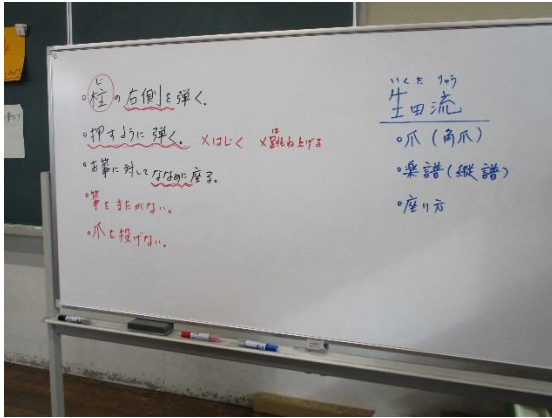 じ
。柱の右側を弾く。
。押すように弾く。 ×はじく ×跳ね上げる
は
。お箏に対してななめに座る。
。箏をまたがない。
。爪を投げない。
いくた りゅう
生田流
。爪(角爪)
。楽譜(縦譜)
。座り方